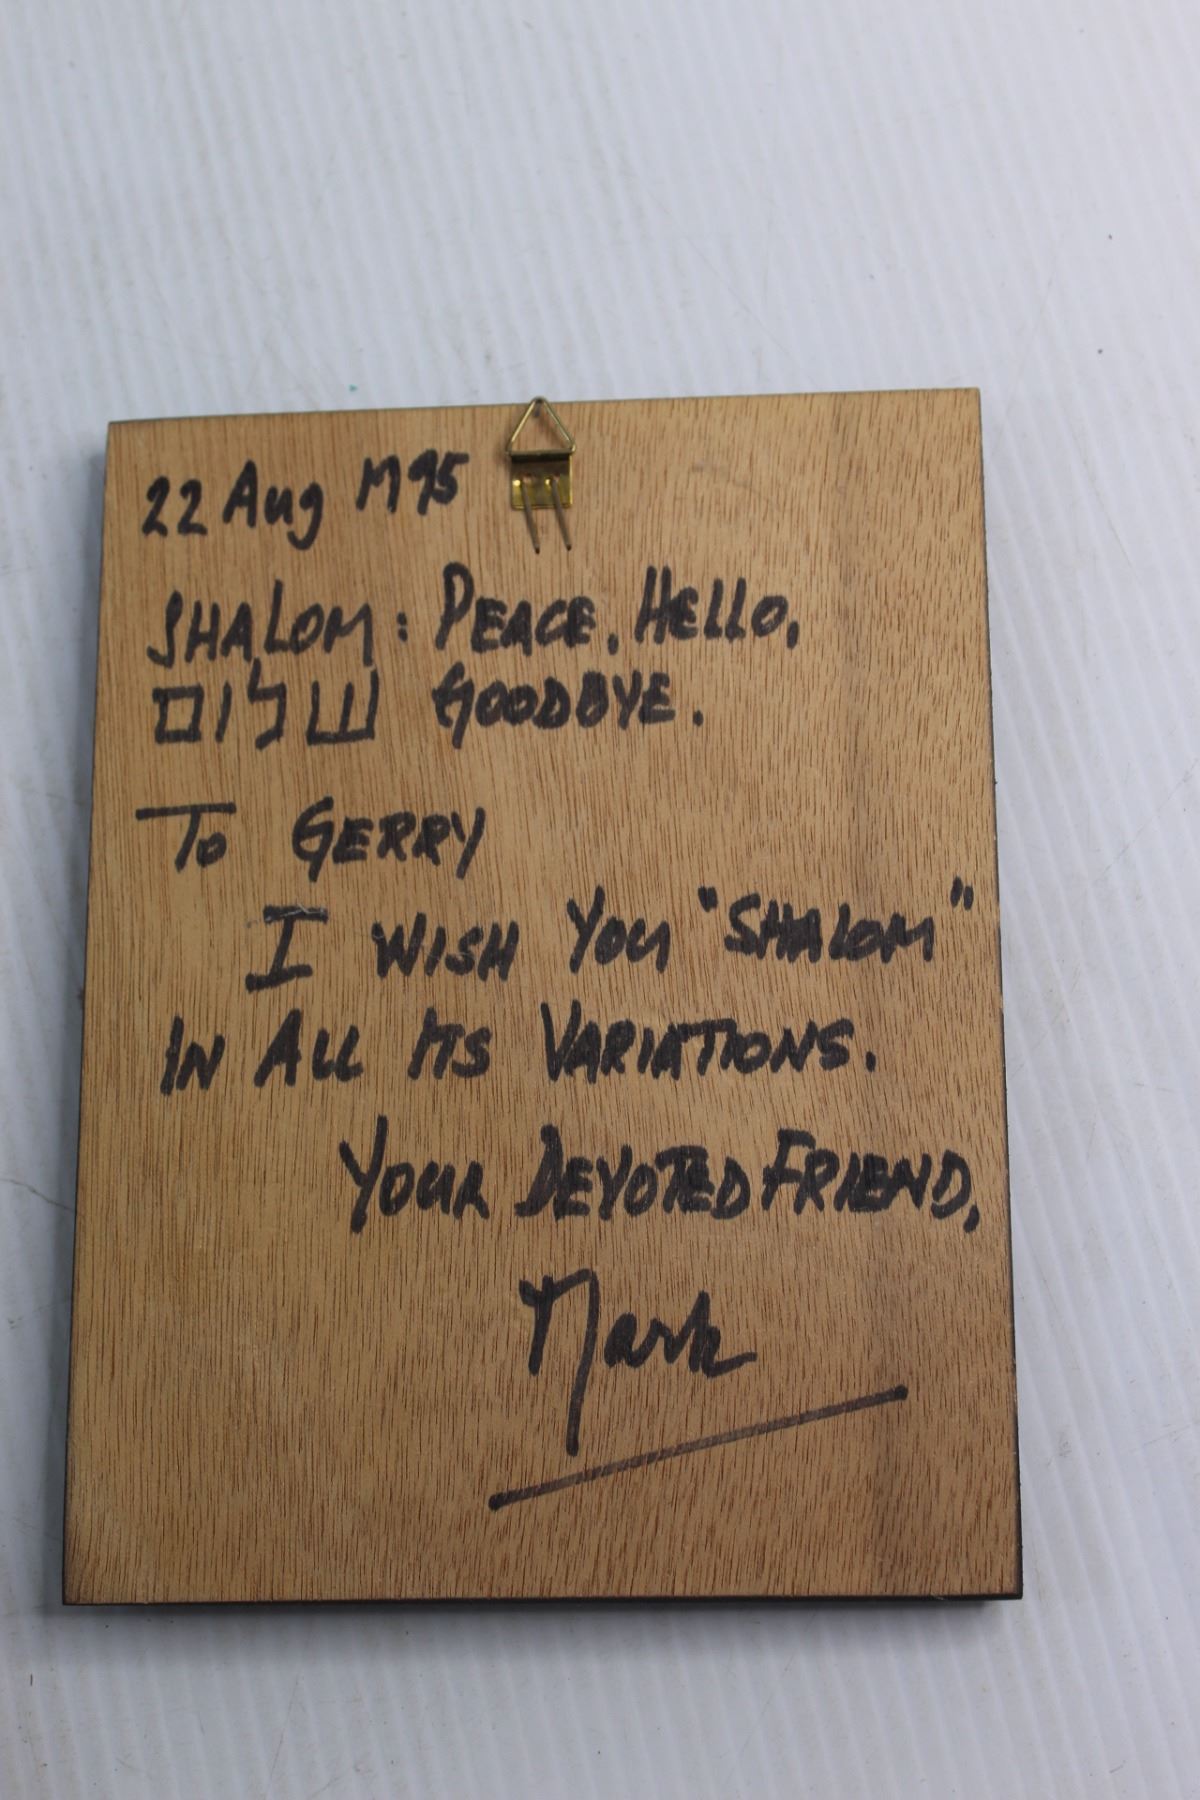 22 Aug 1995
SHALOM: PEACE, HELLO,
שלום GOODBYE.
To GERRY
I WISH YOU "SHALOM"
IN ALL ITS VARIATIONS.
YOUR DEVOTED FRIEND,
Mark